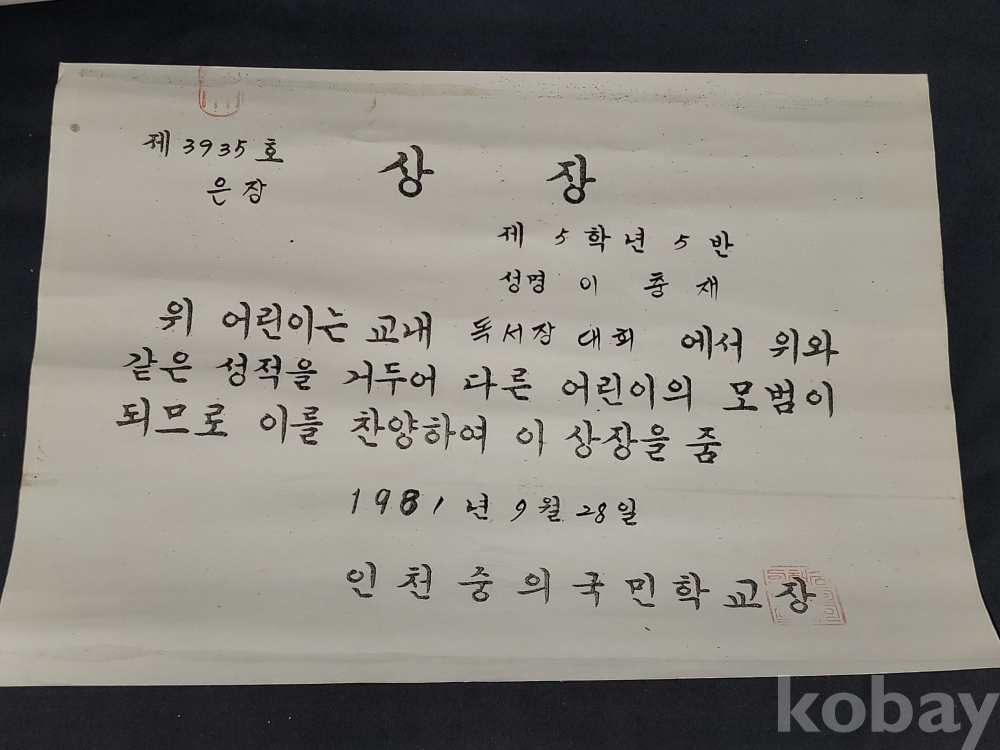 제 3935 호
은장
상 장
제 5 학년 5 반
성명 이 충 재
위 어린이는 교내 독서장 대회 에서 위와
같은 성적을 거두어 다른 어린이의 모범이
되므로 이를 찬양하여 이 상장을 줌
1981년 9월 28일
인천중의국민학교장
kobay